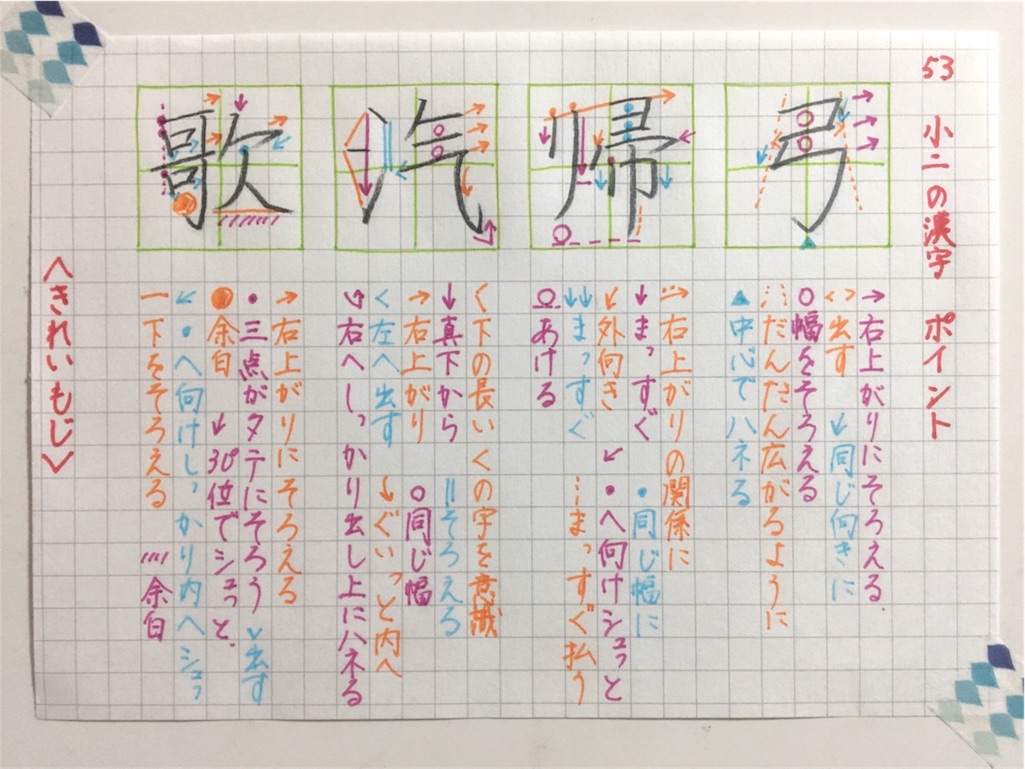 53 小二の漢字 ポイント
弓
帰
汽
歌
→右上がりにそろえる
<>出す ↙同じ向きに
○幅をそろえる
だんだん広がるように
▲中心でハネる
→右上がりの関係に
↓まっすぐ ・同じ幅に
↙外向き ↙・へ向けシュッと
↓↓まっすぐ まっすぐ払う
○あける
く下の長いくの字を意識
↓真下から ||そろえる
→右上がり ○同じ幅
<左へ出す ↓ぐいっと内へ
右へしっかり出し上にハネる
→右上がりにそろえる
・三点がタテにそろう ∨出す
●余白 ↓30°位でシュッと
↙・へ向けしっかり内へシュッ
ー下をそろえる 余白
<きれいもじ>